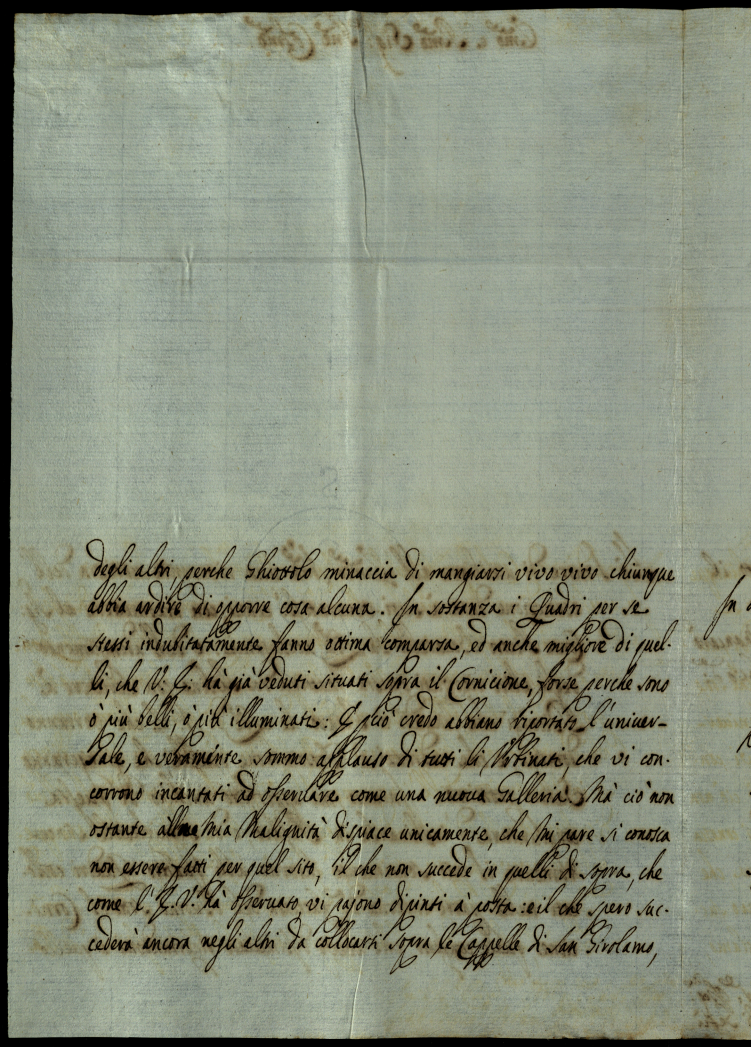 degli altri, perche Ghiottolo minaccia di mangiarsi vivo vivo chiunque
abbia ardire di opporre cosa alcuna. In sostanza i Quadri per se
stessi indubitatamente fanno ottima comparsa, ed anche migliore di quel-
li, che V: E: hà già veduti situati sopra il Cornicione, forse perche sono
ò più belli, ò più illuminati: E p ciò credo abbiano riportato l'univer-
sale, e veramente sommo applauso di tutti li Vrbinati, che vi con-
corrono incantati ad osservare come una nuova Galleria. Mà ciò non
ostante alla mia Malignità dispiace unicamente, che mi pare si conosca
non essere fatti per quel sito, il che non succede in quelli di sopra, che
come l'E.V. hà osservato, vi pajono dipinti à posta: e il che spero suc-
cederà ancora negli altri da collocarsi sopra le Cappelle di San Girolamo,
In